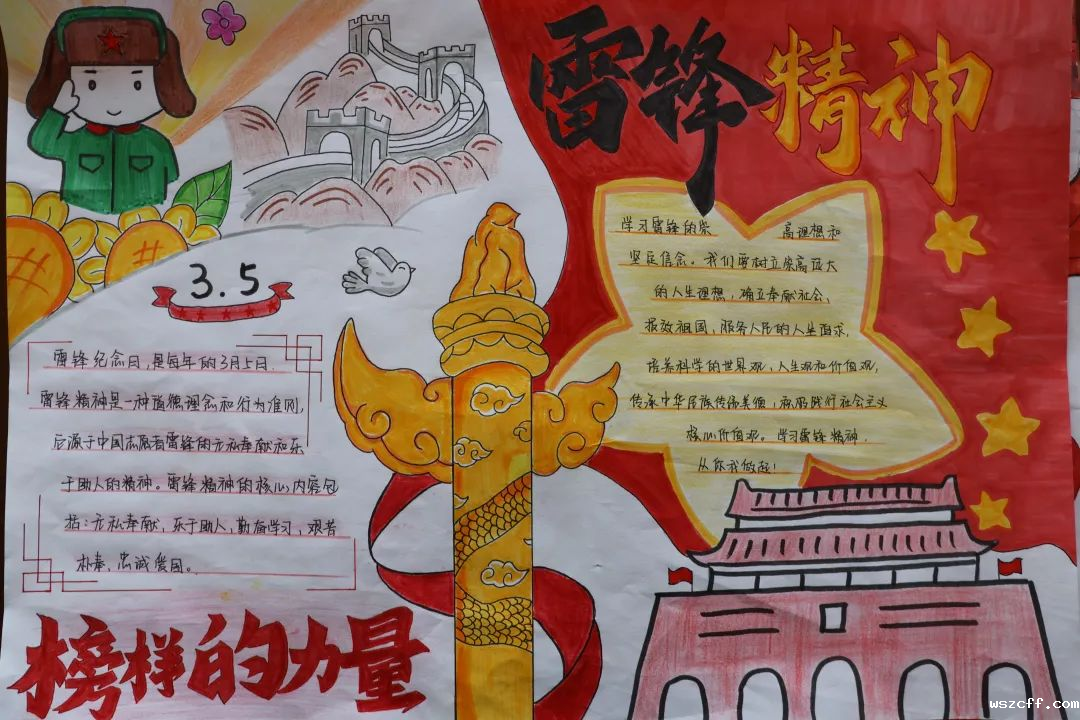 雷锋精神
3.5
雷锋纪念日,是每年的3月5日.
雷锋精神是一种道德理念和行为准则,
起源于中国志愿者雷锋的无私奉献和乐
于助人的精神。雷锋精神的核心内容包
括:无私奉献,乐于助人,勤奋学习,艰苦
朴素,忠诚爱国。
榜样的力量
学习雷锋的崇高理想和
坚定信念。我们要树立崇高远大
的人生理想,确立奉献社会、
报效祖国、服务人民的人生追求,
培养科学的世界观、人生观和价值观,
传承中华民族传统美德,积极践行社会主义
核心价值观。学习雷锋精神,
从你我做起!
wszcff.com